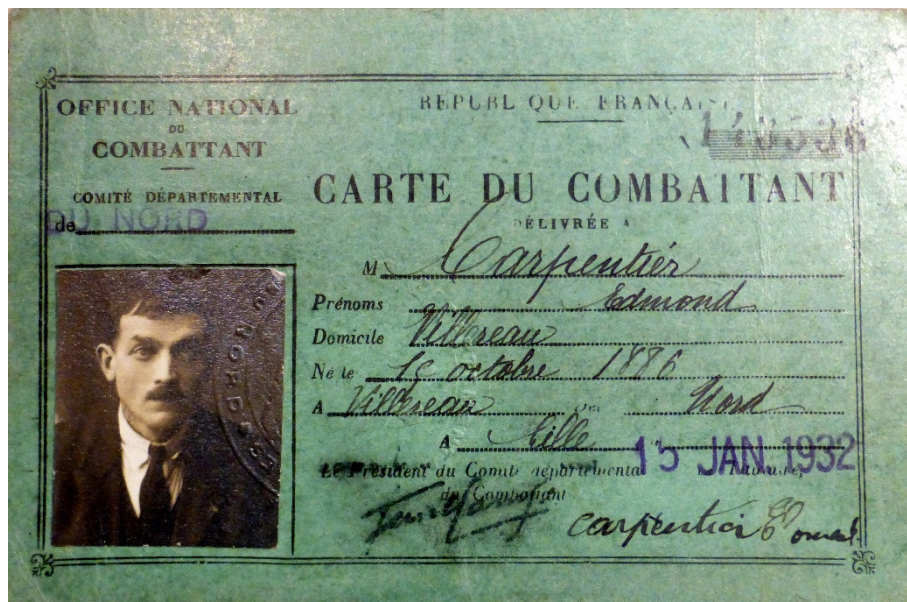 OFFICE NATIONAL
DU
COMBATTANT
COMITÉ DÉPARTEMENTAL
de DU NORD
RÉPUBLIQUE FRANÇAISE
CARTE DU COMBATTANT
DÉLIVRÉE A
M Carpentier
Prénoms Edmond
Domicile Villereau
Né le octobre 1886
A Villereau Nord
A Lille 15 JAN. 1932
Le Président du Comité départemental
du Combattant
Carpentier
DU NORD